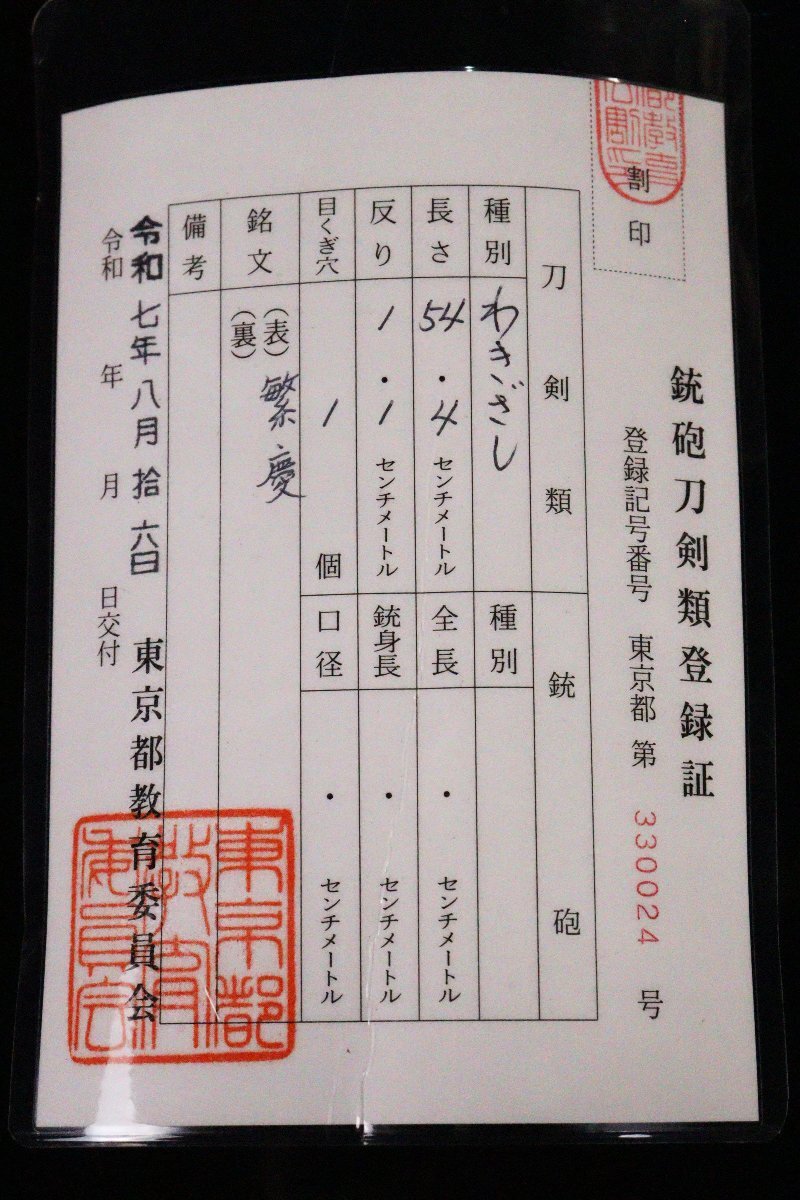 銃砲刀剣類登録証
登録記号番号 東京都 第 330024 号
割印
刀剣類
種別 わきざし
長さ 54・4 センチメートル
反り 1・1 センチメートル
目くぎ穴 1 個
銘文 (表) 繁慶
(裏)
備考
銃砲
種別
全長 ・ センチメートル
銃身長 ・ センチメートル
口径 ・ センチメートル
令和七年八月拾六日
令和 年 月 日交付
東京都教育委員会
東京都
教育
委員会